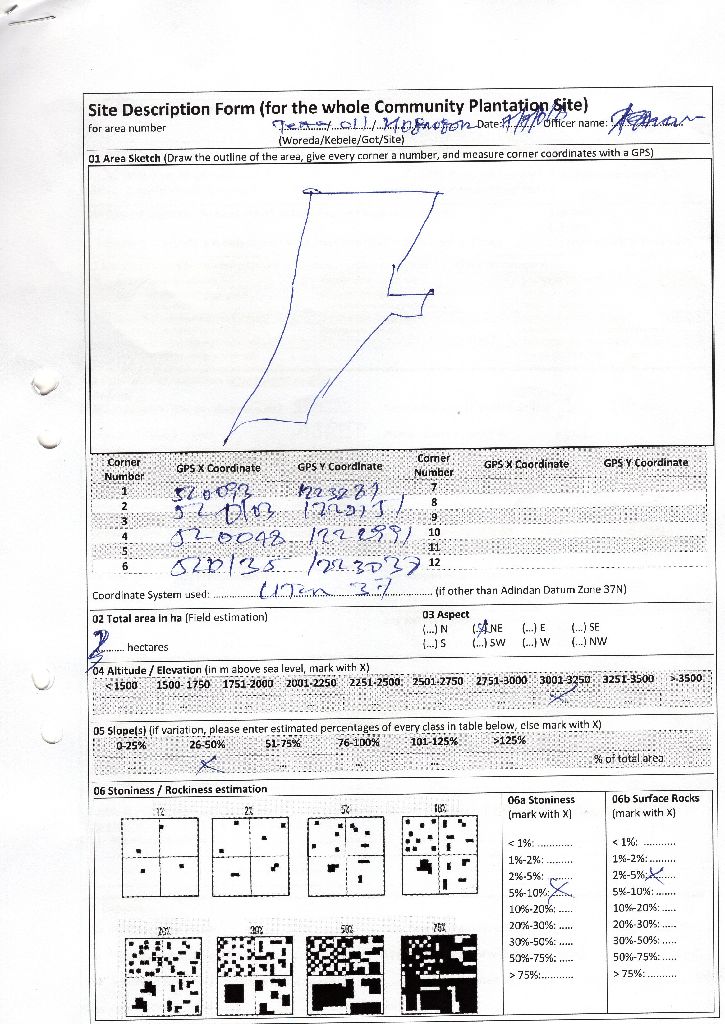 Site Description Form (for the whole Community Plantation Site)
for area number Date: Officer name:
(Woreda/Kebele/Got/Site)
01 Area Sketch (Draw the outline of the area, give every corner a number, and measure corner coordinates with a GPS)
Corner Number GPS X Coordinate GPS Y Coordinate Corner Number GPS X Coordinate GPS Y Coordinate
1 520093 7
2 8
3 9
4 520098 1222991 10
5 11
6 520135 1223037 12
Coordinate System used: UTM 37 (if other than Adindan Datum Zone 37N)
02 Total area in ha (Field estimation) 03 Aspect
2 hectares
(...) N (...) NE (...) E (...) SE
(...) S (...) SW (...) W (...) NW
04 Altitude / Elevation (in m above sea level, mark with X)
<1500 1500-1750 1751-2000 2001-2250 2251-2500 2501-2750 2751-3000 3001-3250 3251-3500 >3500
X
05 Slope(s) (if variation, please enter estimated percentages of every class in table below, else mark with X)
0-25% 26-50% 51-75% 76-100% 101-125% >125%
X % of total area
06 Stoniness / Rockiness estimation
1% 2% 5% 10%
20% 30% 50% 75%
06a Stoniness
(mark with X)
< 1%: ............
1%-2%: .........
2%-5%: .........
5%-10%: X
10%-20%: .....
20%-30%: .....
30%-50%: .....
50%-75%: .....
> 75%: ...........
06b Surface Rocks
(mark with X)
< 1%: ............
1%-2%: .........
2%-5%: X
5%-10%: .......
10%-20%: .....
20%-30%: .....
30%-50%: .....
50%-75%: .....
> 75%: ..........